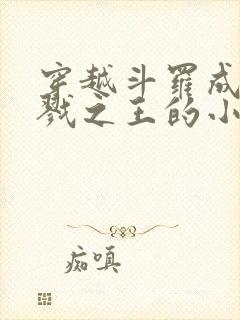 穿越斗罗成
戮之王的小
痴嗔